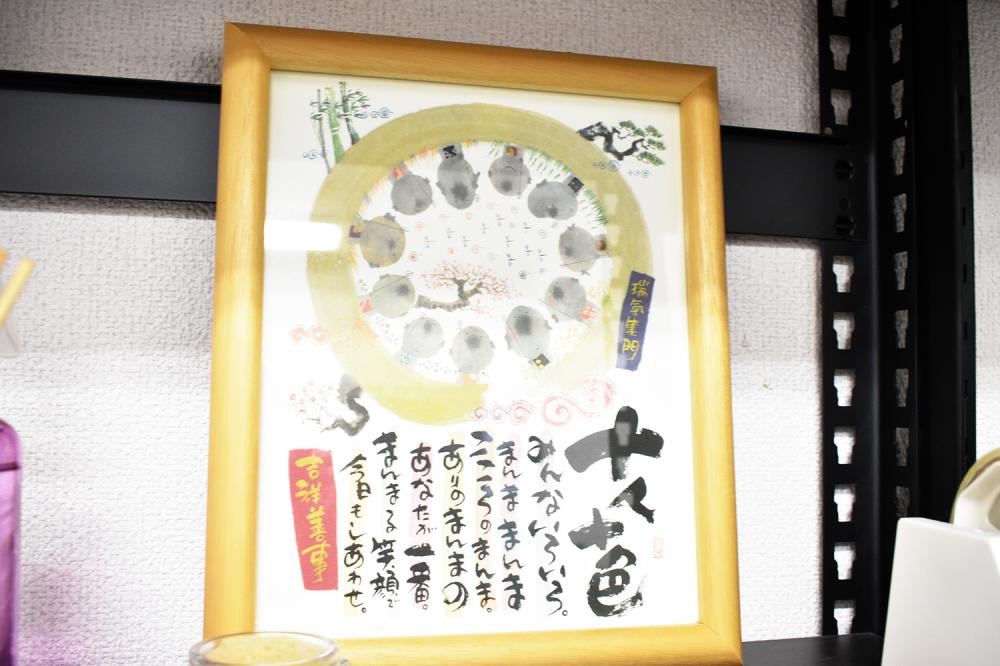 瑞気集門
十人十色
みんないろいろ。
まんままんま
こころのまんま。
ありのまんまの
あなたが一番。
まんまる笑顔で
今日もしあわせ。
吉祥善事